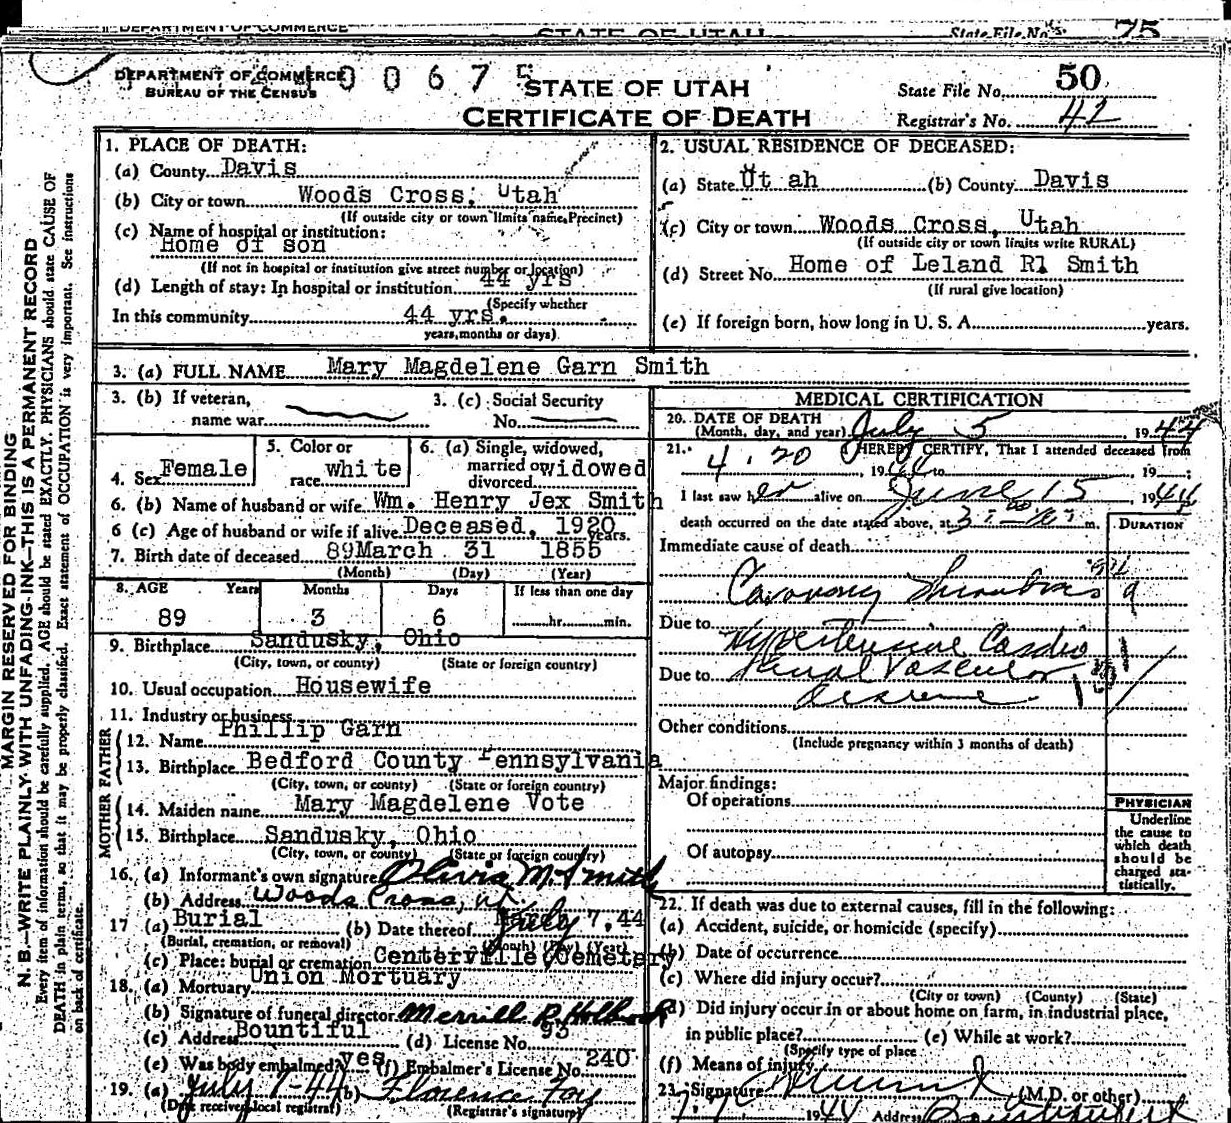 DEPARTMENT OF COMMERCE STATE OF UTAH State File No. 75
DEPARTMENT OF COMMERCE 0 0 6 7 5
BUREAU OF THE CENSUS
STATE OF UTAH
CERTIFICATE OF DEATH
State File No. 50
Registrar's No. 42
MARGIN RESERVED FOR BINDING
N. B.—WRITE PLAINLY WITH UNFADING INK—THIS IS A PERMANENT RECORD
Every item of information should be carefully supplied. AGE should be stated EXACTLY. PHYSICIANS should state CAUSE OF
DEATH in plain terms, so that it may be properly classified. Exact statement of OCCUPATION is very important. See instructions
on back of certificate.
1. PLACE OF DEATH:
(a) County Davis
(b) City or town Woods Cross, Utah
(If outside city or town limits name Precinct)
(c) Name of hospital or institution:
Home of son
(If not in hospital or institution give street number or location)
(d) Length of stay: In hospital or institution 44 yrs
(Specify whether
In this community 44 yrs.
years, months or days)
2. USUAL RESIDENCE OF DECEASED:
(a) State Ut ah (b) County Davis
(c) City or town Woods Cross, Utah
(If outside city or town limits write RURAL)
(d) Street No. Home of Leland R. Smith
(If rural give location)
(e) If foreign born, how long in U. S. A. years.
3. (a) FULL NAME Mary Magdelene Garn Smith
3. (b) If veteran, name war
3. (c) Social Security No.
4. Sex Female
5. Color or race white
6. (a) Single, widowed, married or divorced widowed
6. (b) Name of husband or wife Wm. Henry Jex Smith
6 (c) Age of husband or wife if alive Deceased, 1920 years.
7. Birth date of deceased 89 March 31 1855
(Month) (Day) (Year)
8. AGE Years Months Days If less than one day
89 3 6 hr. min.
9. Birthplace Sandusky, Ohio
(City, town, or county) (State or foreign country)
10. Usual occupation Housewife
11. Industry or business
FATHER
12. Name Phillip Garn
13. Birthplace Bedford County Pennsylvania
(City, town, or county) (State or foreign country)
MOTHER
14. Maiden name Mary Magdelene Vote
15. Birthplace Sandusky, Ohio
(City, town, or county) (State or foreign country)
16. (a) Informant's own signature Olivia M. Smith
(b) Address Woods Cross, Ut
17 (a) Burial (b) Date thereof July 7, 44
(Burial, cremation, or removal) (Month) (Day) (Year)
(c) Place: burial or cremation Centerville Cemetary
18. (a) Mortuary Union Mortuary
(b) Signature of funeral director Merrill R. Holbrook
(c) Address Bountiful (d) License No. 93
(e) Was body embalmed yes (f) Embalmer's License No. 240
19. (a) July 7-44 (b) Florence Foy
(Date received local registrar) (Registrar's signature)
MEDICAL CERTIFICATION
20. DATE OF DEATH
(Month, day, and year) July 5 1944
21. I HEREBY CERTIFY, That I attended deceased from
4.20 1944 to 19 ;
I last saw her alive on June 15, 1944
death occurred on the date stated above, at m.
DURATION
Immediate cause of death
Coronary Thrombosis
Due to Hypertensive Cardio
Due to renal Vascular
disease
Other conditions
(Include pregnancy within 3 months of death)
Major findings:
Of operations
Of autopsy
PHYSICIAN
Underline
the cause to
which death
should be
charged sta-
tistically.
22. If death was due to external causes, fill in the following:
(a) Accident, suicide, or homicide (specify)
(b) Date of occurrence
(c) Where did injury occur?
(City or town) (County) (State)
(d) Did injury occur in or about home on farm, in industrial place,
in public place? (e) While at work?
(Specify type of place
(f) Means of injury
23. Signature (M.D. or other)
1944 Address